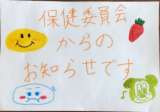 保健委員会
からの
お知らせです